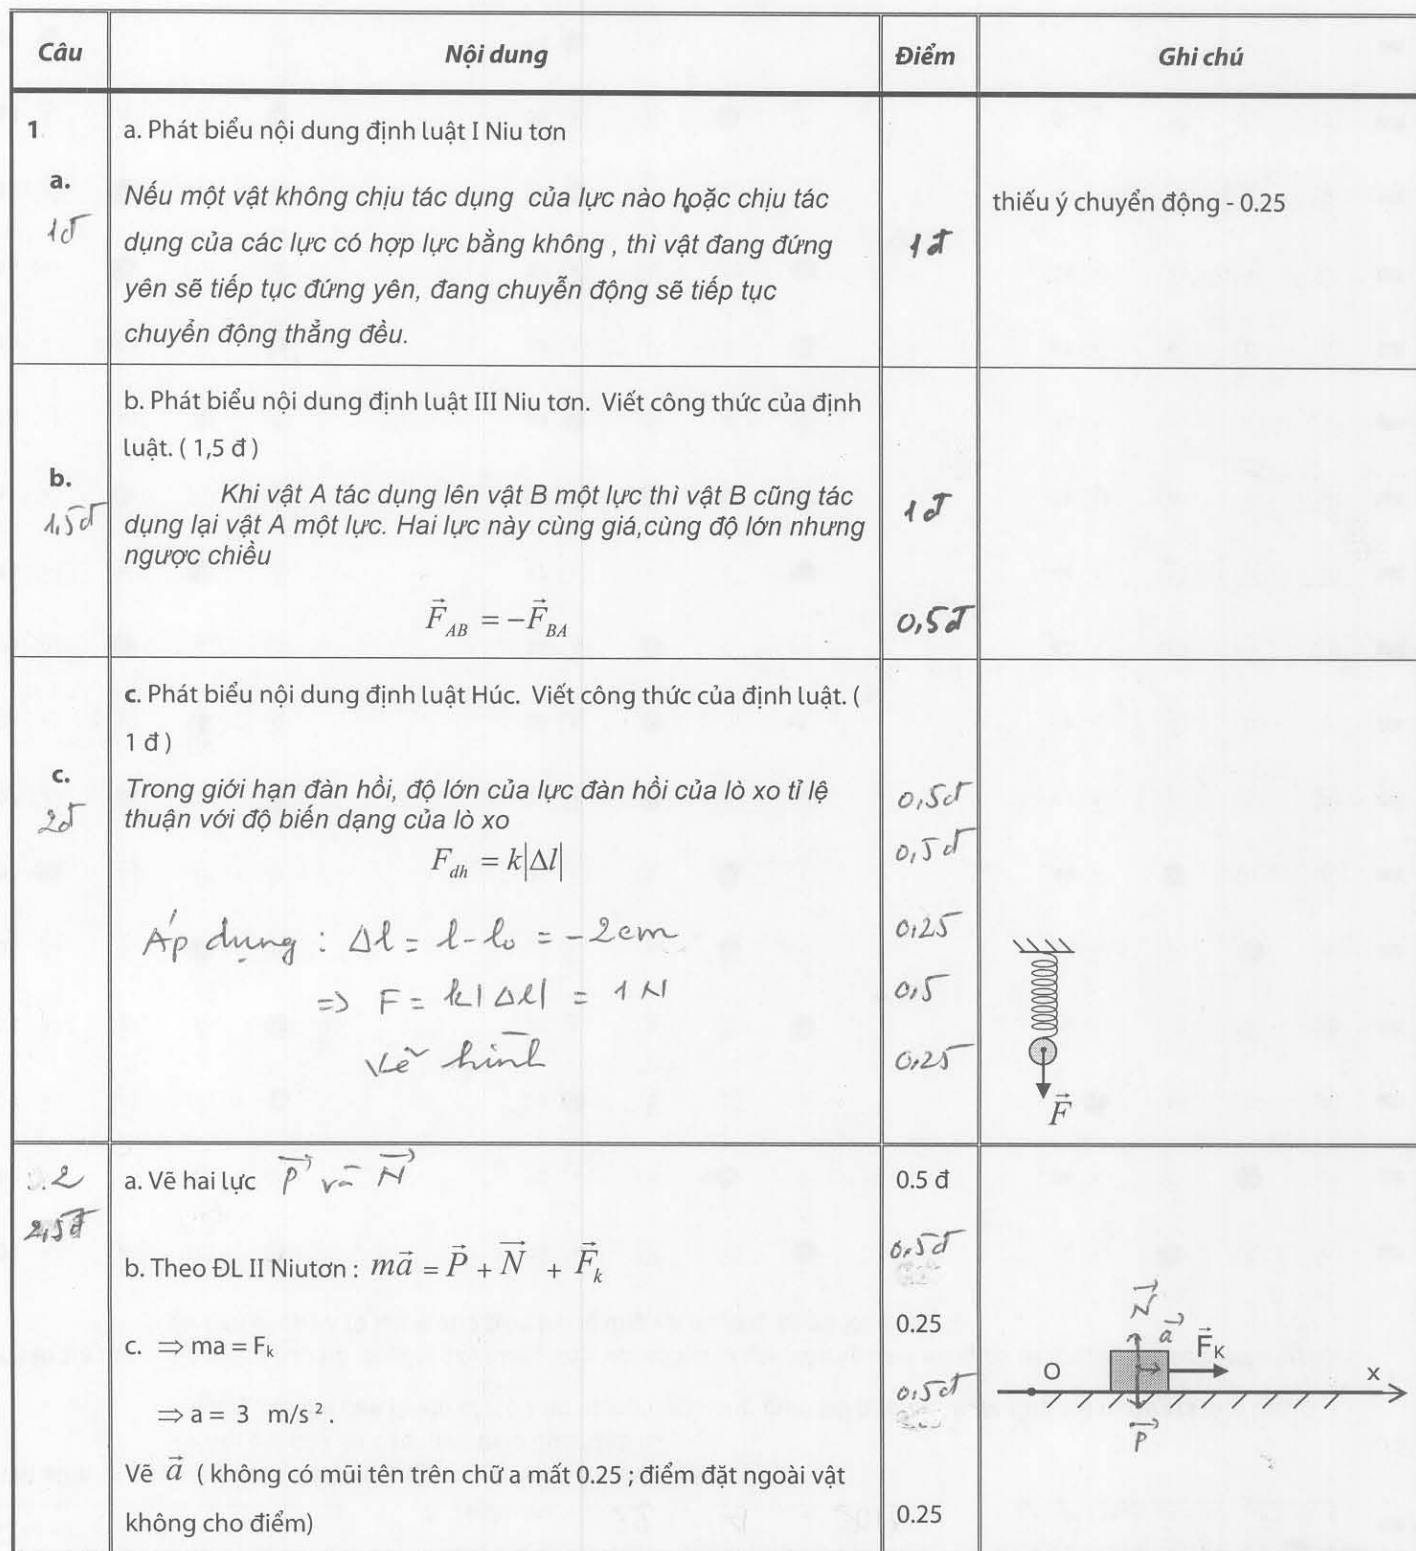 Câu Nội dung Điểm Ghi chú
1 a. Phát biểu nội dung định luật I Niu tơn
a. Nếu một vật không chịu tác dụng của lực nào hoặc chịu tác thiếu ý chuyển động - 0.25
1đ dụng của các lực có hợp lực bằng không , thì vật đang đứng 1đ
yên sẽ tiếp tục đứng yên, đang chuyễn động sẽ tiếp tục
chuyển động thẳng đều.
b. Phát biểu nội dung định luật III Niu tơn. Viết công thức của định
luật. ( 1,5 đ )
b. Khi vật A tác dụng lên vật B một lực thì vật B cũng tác
1,5đ dụng lại vật A một lực. Hai lực này cùng giá,cùng độ lớn nhưng 1đ
ngược chiều
$\vec{F}_{AB} = -\vec{F}_{BA}$ 0,5đ
c. Phát biểu nội dung định luật Húc. Viết công thức của định luật. (
1 đ )
c. Trong giới hạn đàn hồi, độ lớn của lực đàn hồi của lò xo tỉ lệ 0,5đ
2đ thuận với độ biến dạng của lò xo
$F_{dh} = k|\Delta l|$ 0,5đ
Áp dụng : Δl = l - l₀ = -2cm 0,25
=> F = k|Δl| = 1N 0,5
Vẽ hình 0,25
$\vec{F}$
2 a. Vẽ hai lực $\vec{P}$ và $\vec{N}$ 0.5 đ
2,5đ
b. Theo ĐL II Niutơn : $m\vec{a} = \vec{P} + \vec{N} + \vec{F}_k$ 0,5đ
c. ⇒ ma = Fₖ 0.25
⇒ a = 3 m/s² . 0,5đ
Vẽ $\vec{a}$ ( không có mũi tên trên chữ a mất 0.25 ; điểm đặt ngoài vật
không cho điểm) 0.25
$\vec{N}$
$\vec{a}$ $\vec{F}_K$
O x
$\vec{P}$